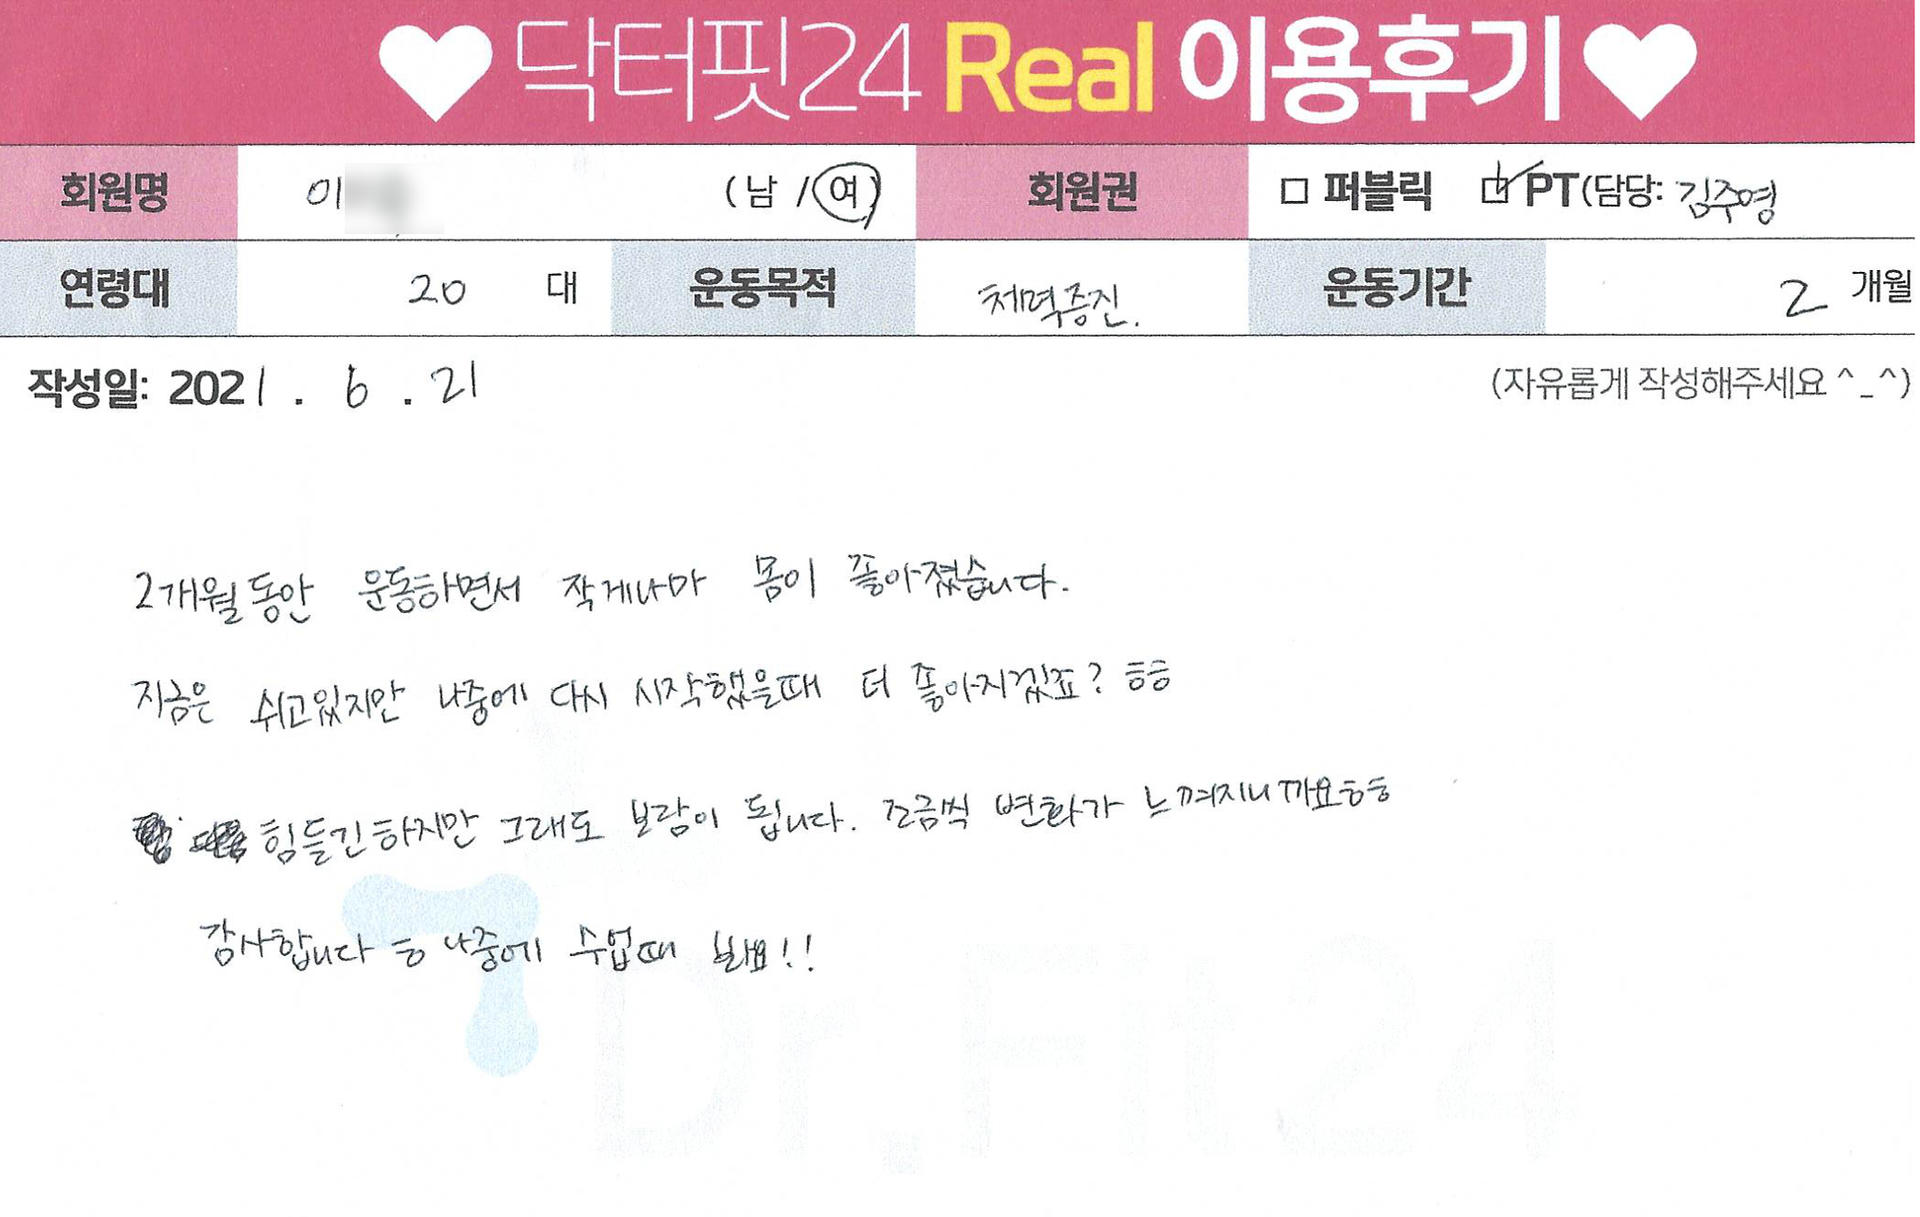 ♥ 닥터핏24 Real 이용후기 ♥
회원명 이 (남 / 여) 회원권 □ 퍼블릭 ☑ PT(담당: 김주영
연령대 20 대 운동목적 체력증진. 운동기간 2 개월
작성일: 2021. 6. 21 (자유롭게 작성해주세요 ^_^)
2개월동안 운동하면서 작게나마 몸이 좋아졌습니다.
지금은 쉬고있지만 나중에 다시 시작했을때 더 좋아지겠죠? ㅎㅎ
힘들긴하지만 그래도 보람이 됩니다. 조금씩 변화가 느껴지니까요ㅎㅎ
감사합니다 ㅎ 나중에 수업때 봬요!!
Dr.Fit24